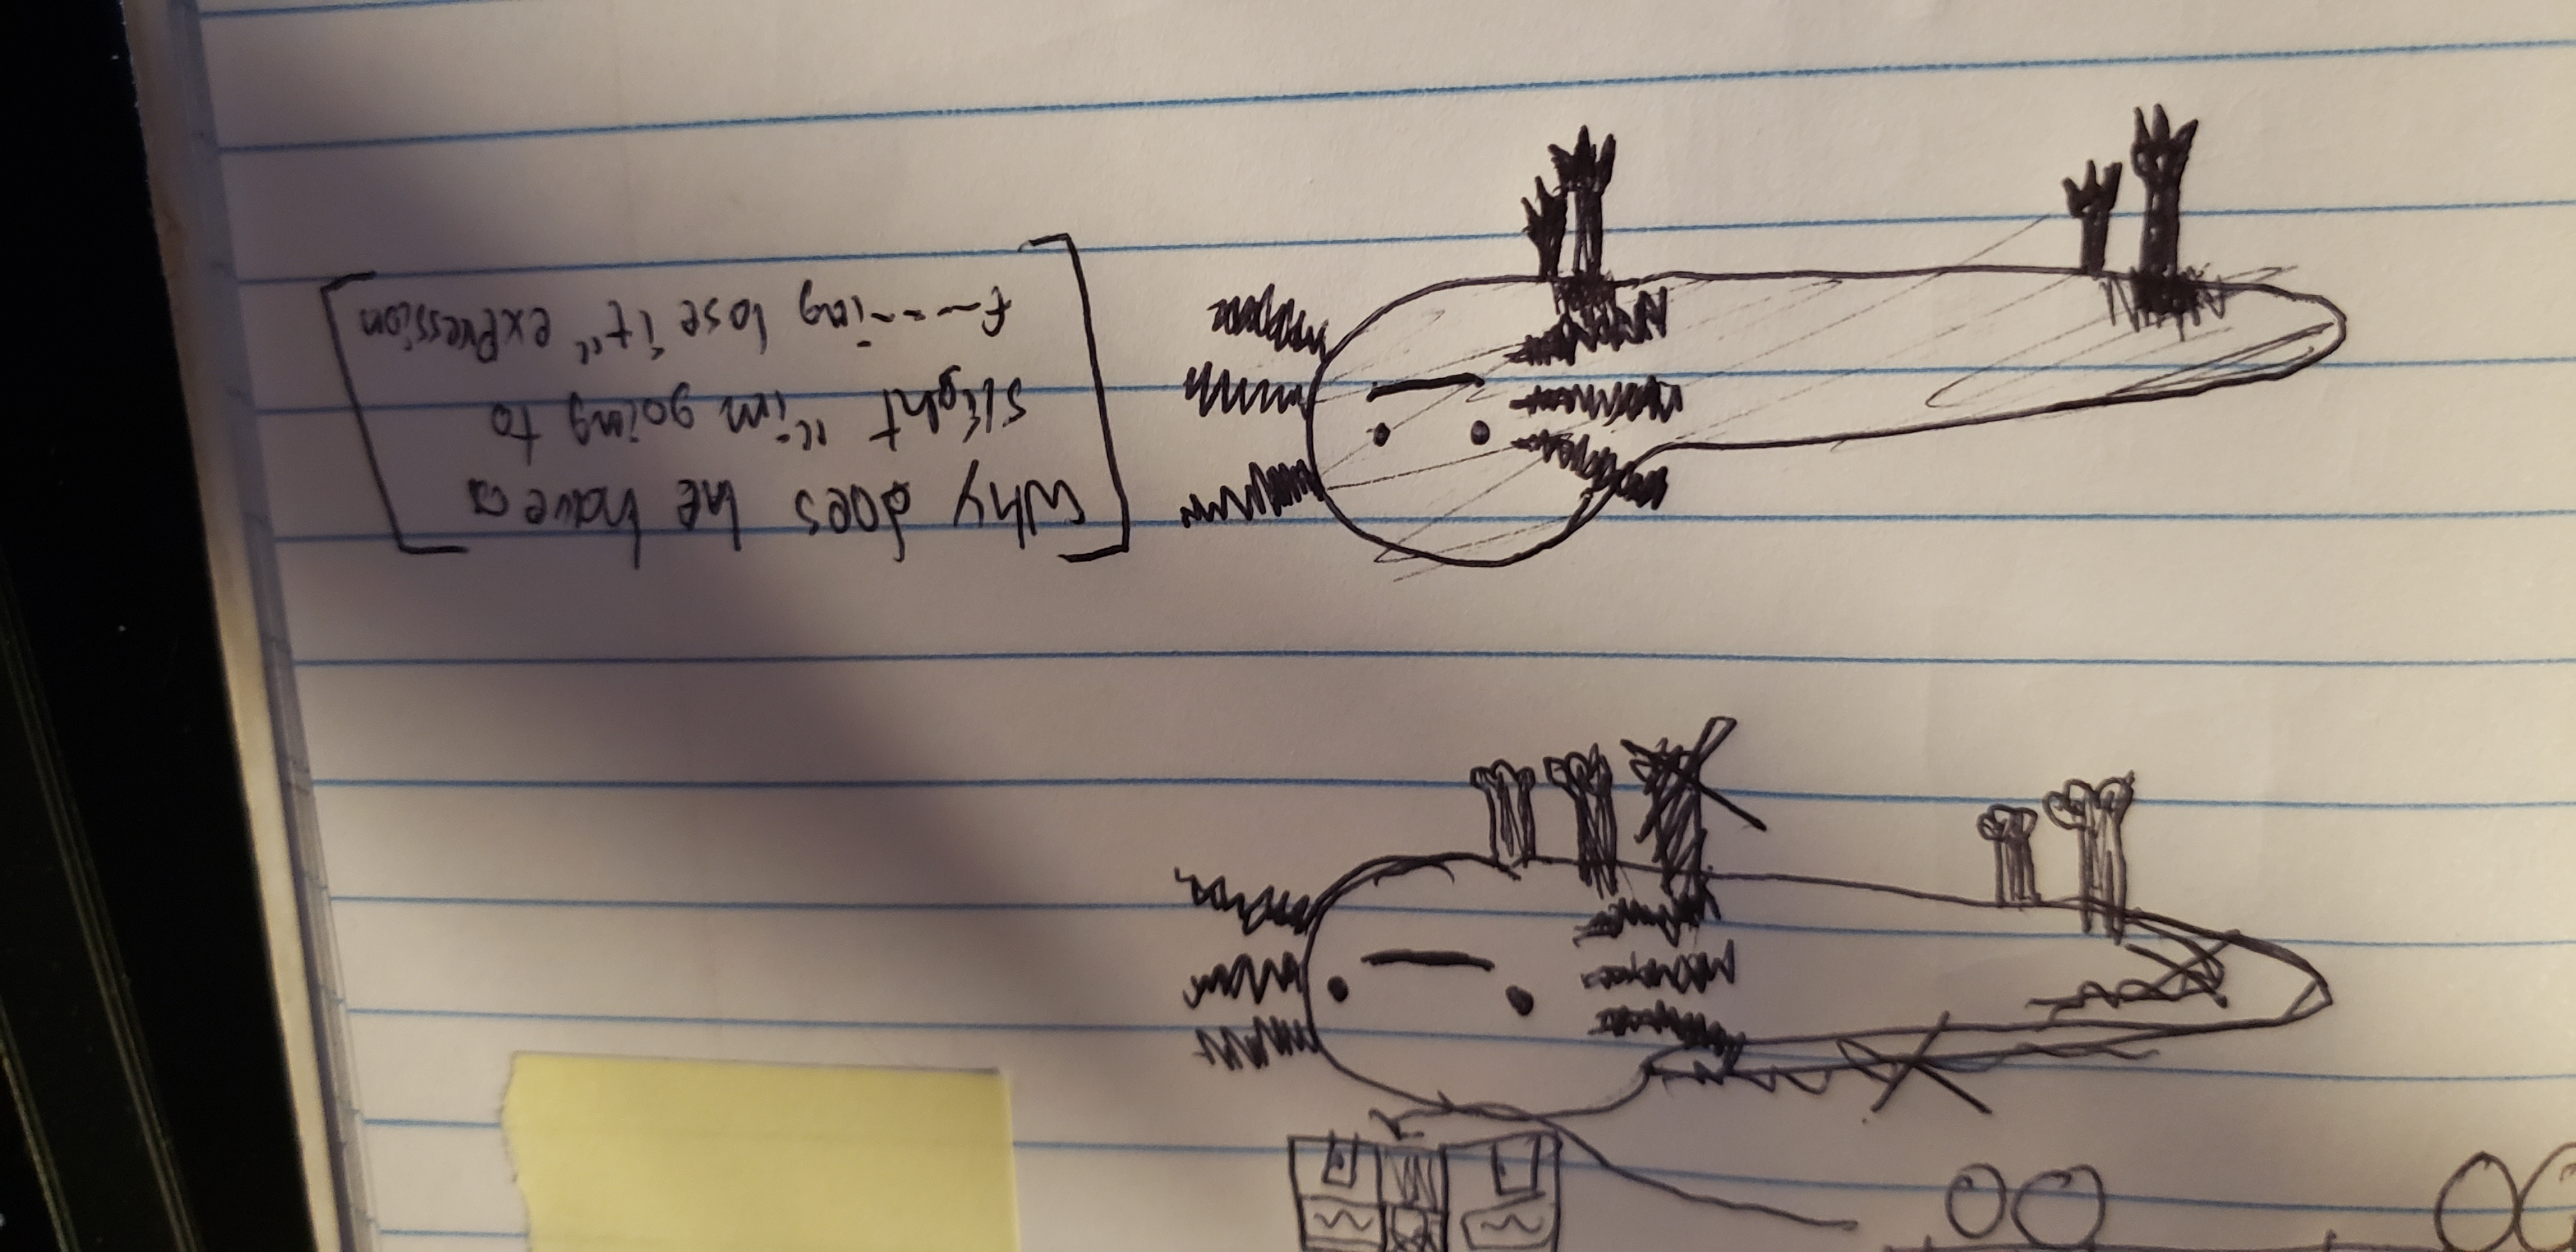 Why does he have a
slight "im going to
f----ing lose it" expression